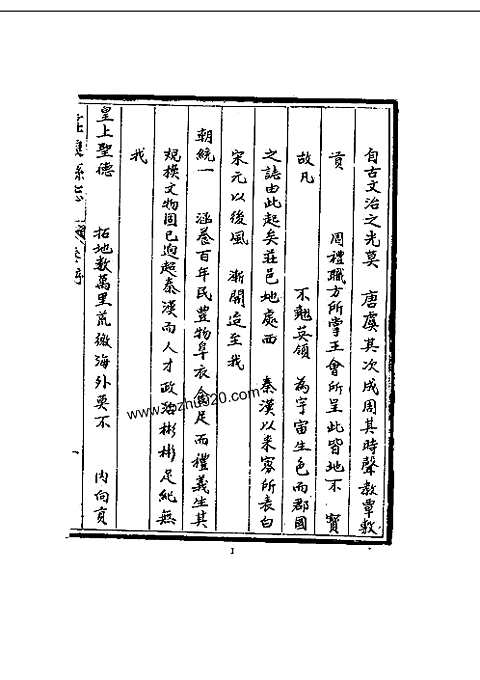 自古文治之光莫 唐虞其次成周其時聲教覃敷
貢 周禮職方所掌王會所呈此皆地不 寶
故凡 不翹英領 為宇宙生色而郡國
之誌由此起矣莊邑地處西 秦漢以来寥所表白
宋元以後風 漸開迨至我
朝統一 涵養百年民豊物阜衣食足而禮義生其
規模文物固已逈超秦漢而人才政治彬彬足紀無
我
皇上聖德 拓地數萬里荒徼海外要不 内向貢
莊 縣志 序
一
www.bzhi020.com
1